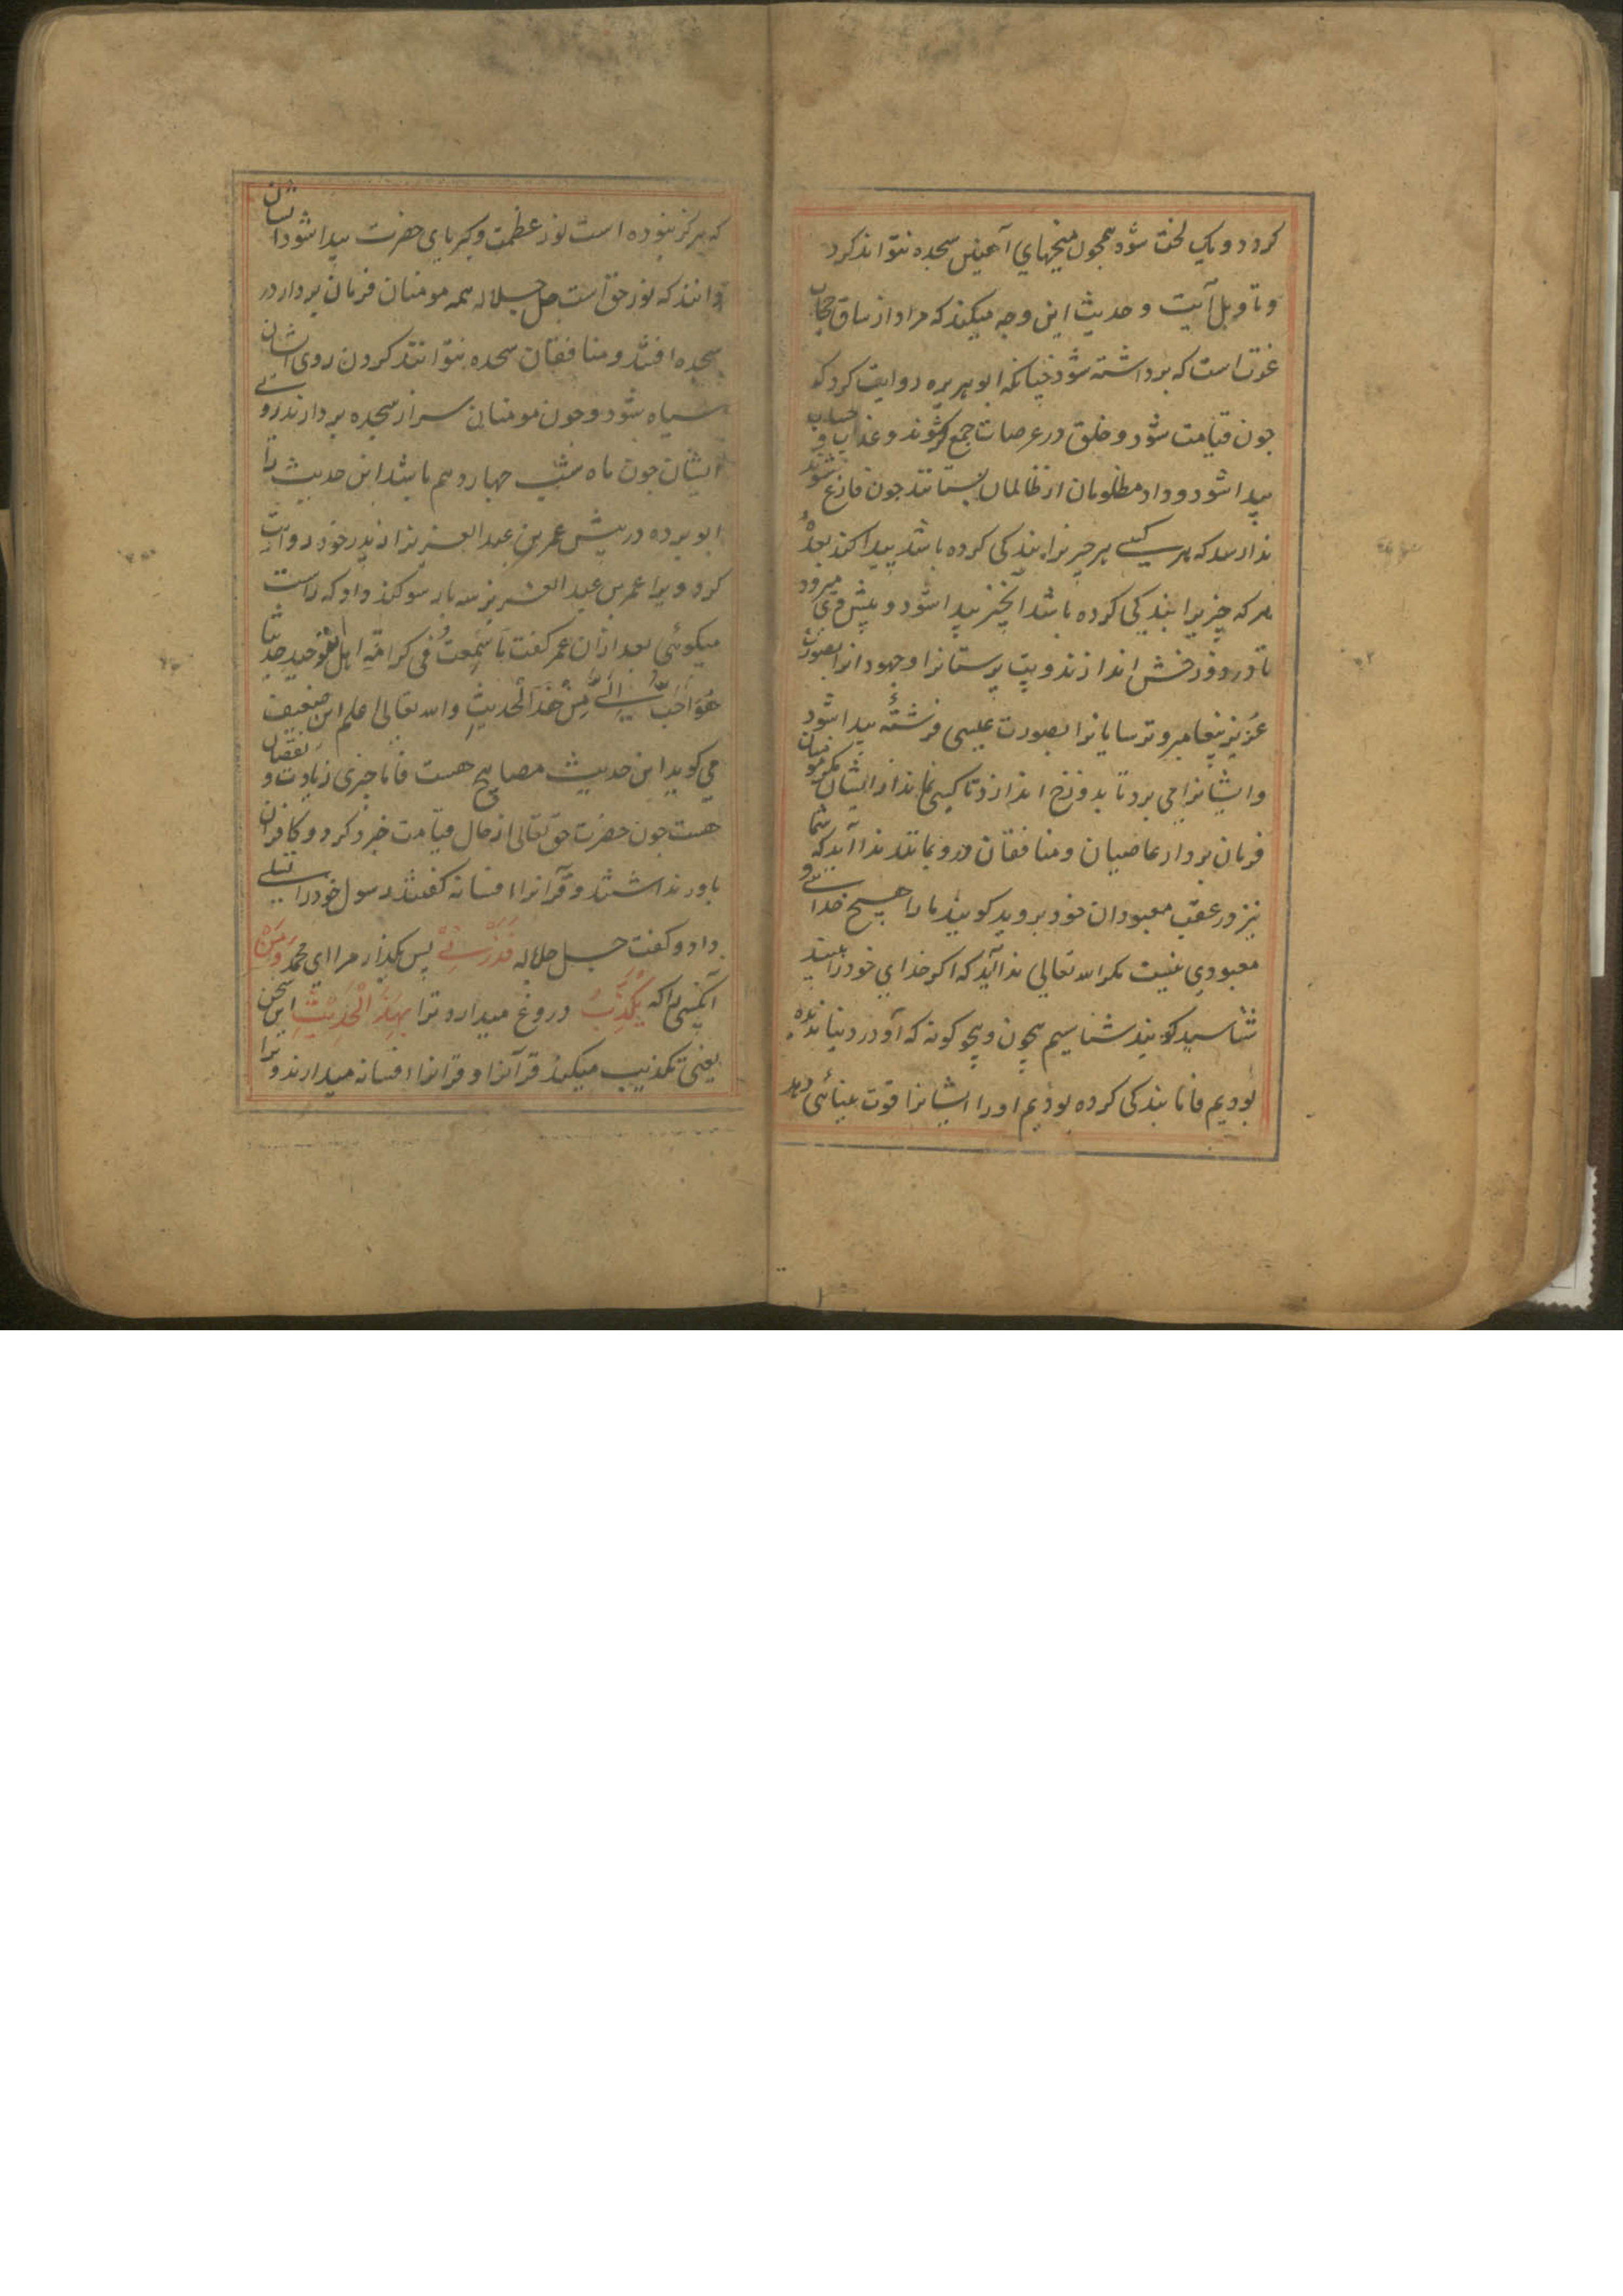 کردد و یک لخت شود همچون میخهای آهنین سجده نتواند کرد
و تاویل آیت و حدیث این وجه میکند که مراد از ساق حجاب
عزت است که برداشته شود چنانکه ابو هریره روایت کرد که
چون قیامت شود و خلق در عرصات جمع شوند و عذاب و حساب
پیدا شود و داد مظلومان از ظالمان بستانند چون فارغ شوند
ندا رسد که هر کسے هر چیزیرا بندکی کرده باشد پیدا کند بعدهٗ
هر که چیزیرا بندکی کرده باشد آنچیز پیدا شود و پیش وی میرود
تا در دوزخش اندازند و بت پرستانرا و جهودانرا بصورت
عزیر پیغامبر و ترسایانرا بصورت عیسی فرشتهٔ پیدا شود
و ایشانرا می برد تا بدوزخ اندازد تا کسی نماند از ایشان مکر مومنان
فرمان بردار عاصیان و منافقان درو بمانند ندا آید که شما
نیز در عقب معبودان خود بروید کویند ما را هیچ خدائے و
معبودی نیست مکر الله تعالی ندا آید که اکر خدای خود را ببینید
شناسید کویند شناسیم بیچون و بیچکونه که او را در دنیا ندیده
بودیم فاما بندکی کرده بودیم او را ایشانرا قوت بینائی دهد
که هرکز نبوده است نور عظمت و کبریای حضرت پیدا شود ایشان
دانند که نور حق است جل جلاله همه مومنان فرمان بردار در
سجده افتند و منافقان سجده نتوانند کردن روی ایشان
سیاه شود و چون مومنان سر از سجده بردارند روے
ایشان چون ماه شب چهاردهم باشد این حدیث را
ابو برده در پیش عمر بن عبد العزیز از پدر خود روایت
کرد ویرا عمر بن عبد العزیز سه بار سوکند داد که راست
میکوئی بعد ازان عمر کفت ما سمعت فی کرامة اهل التوحید حدیثا
هو احب الیّ من هذا الحدیث والله تعالی اعلم این ضعیف
می کوید این حدیث مصابیح هست فاما چیزی زیادت و نقصان
هست چون حضرت حق تعالی از حال قیامت خبر کرد و کافران
باور نداشتند و قرآنرا افسانه کفتند رسول خود را تسلے
داد و کفت جل جلاله فَذَرْنِیْ پس بکذار مرا ای محمد وَمَنْ
آنکسی را که یُکَذِّبُ دروغ میدارد ترا بِهٰذَا الْحَدِیْثِ این سخن
یعنی تکذیب میکند قرآنرا و قرآنرا افسانه میدارند و ترا